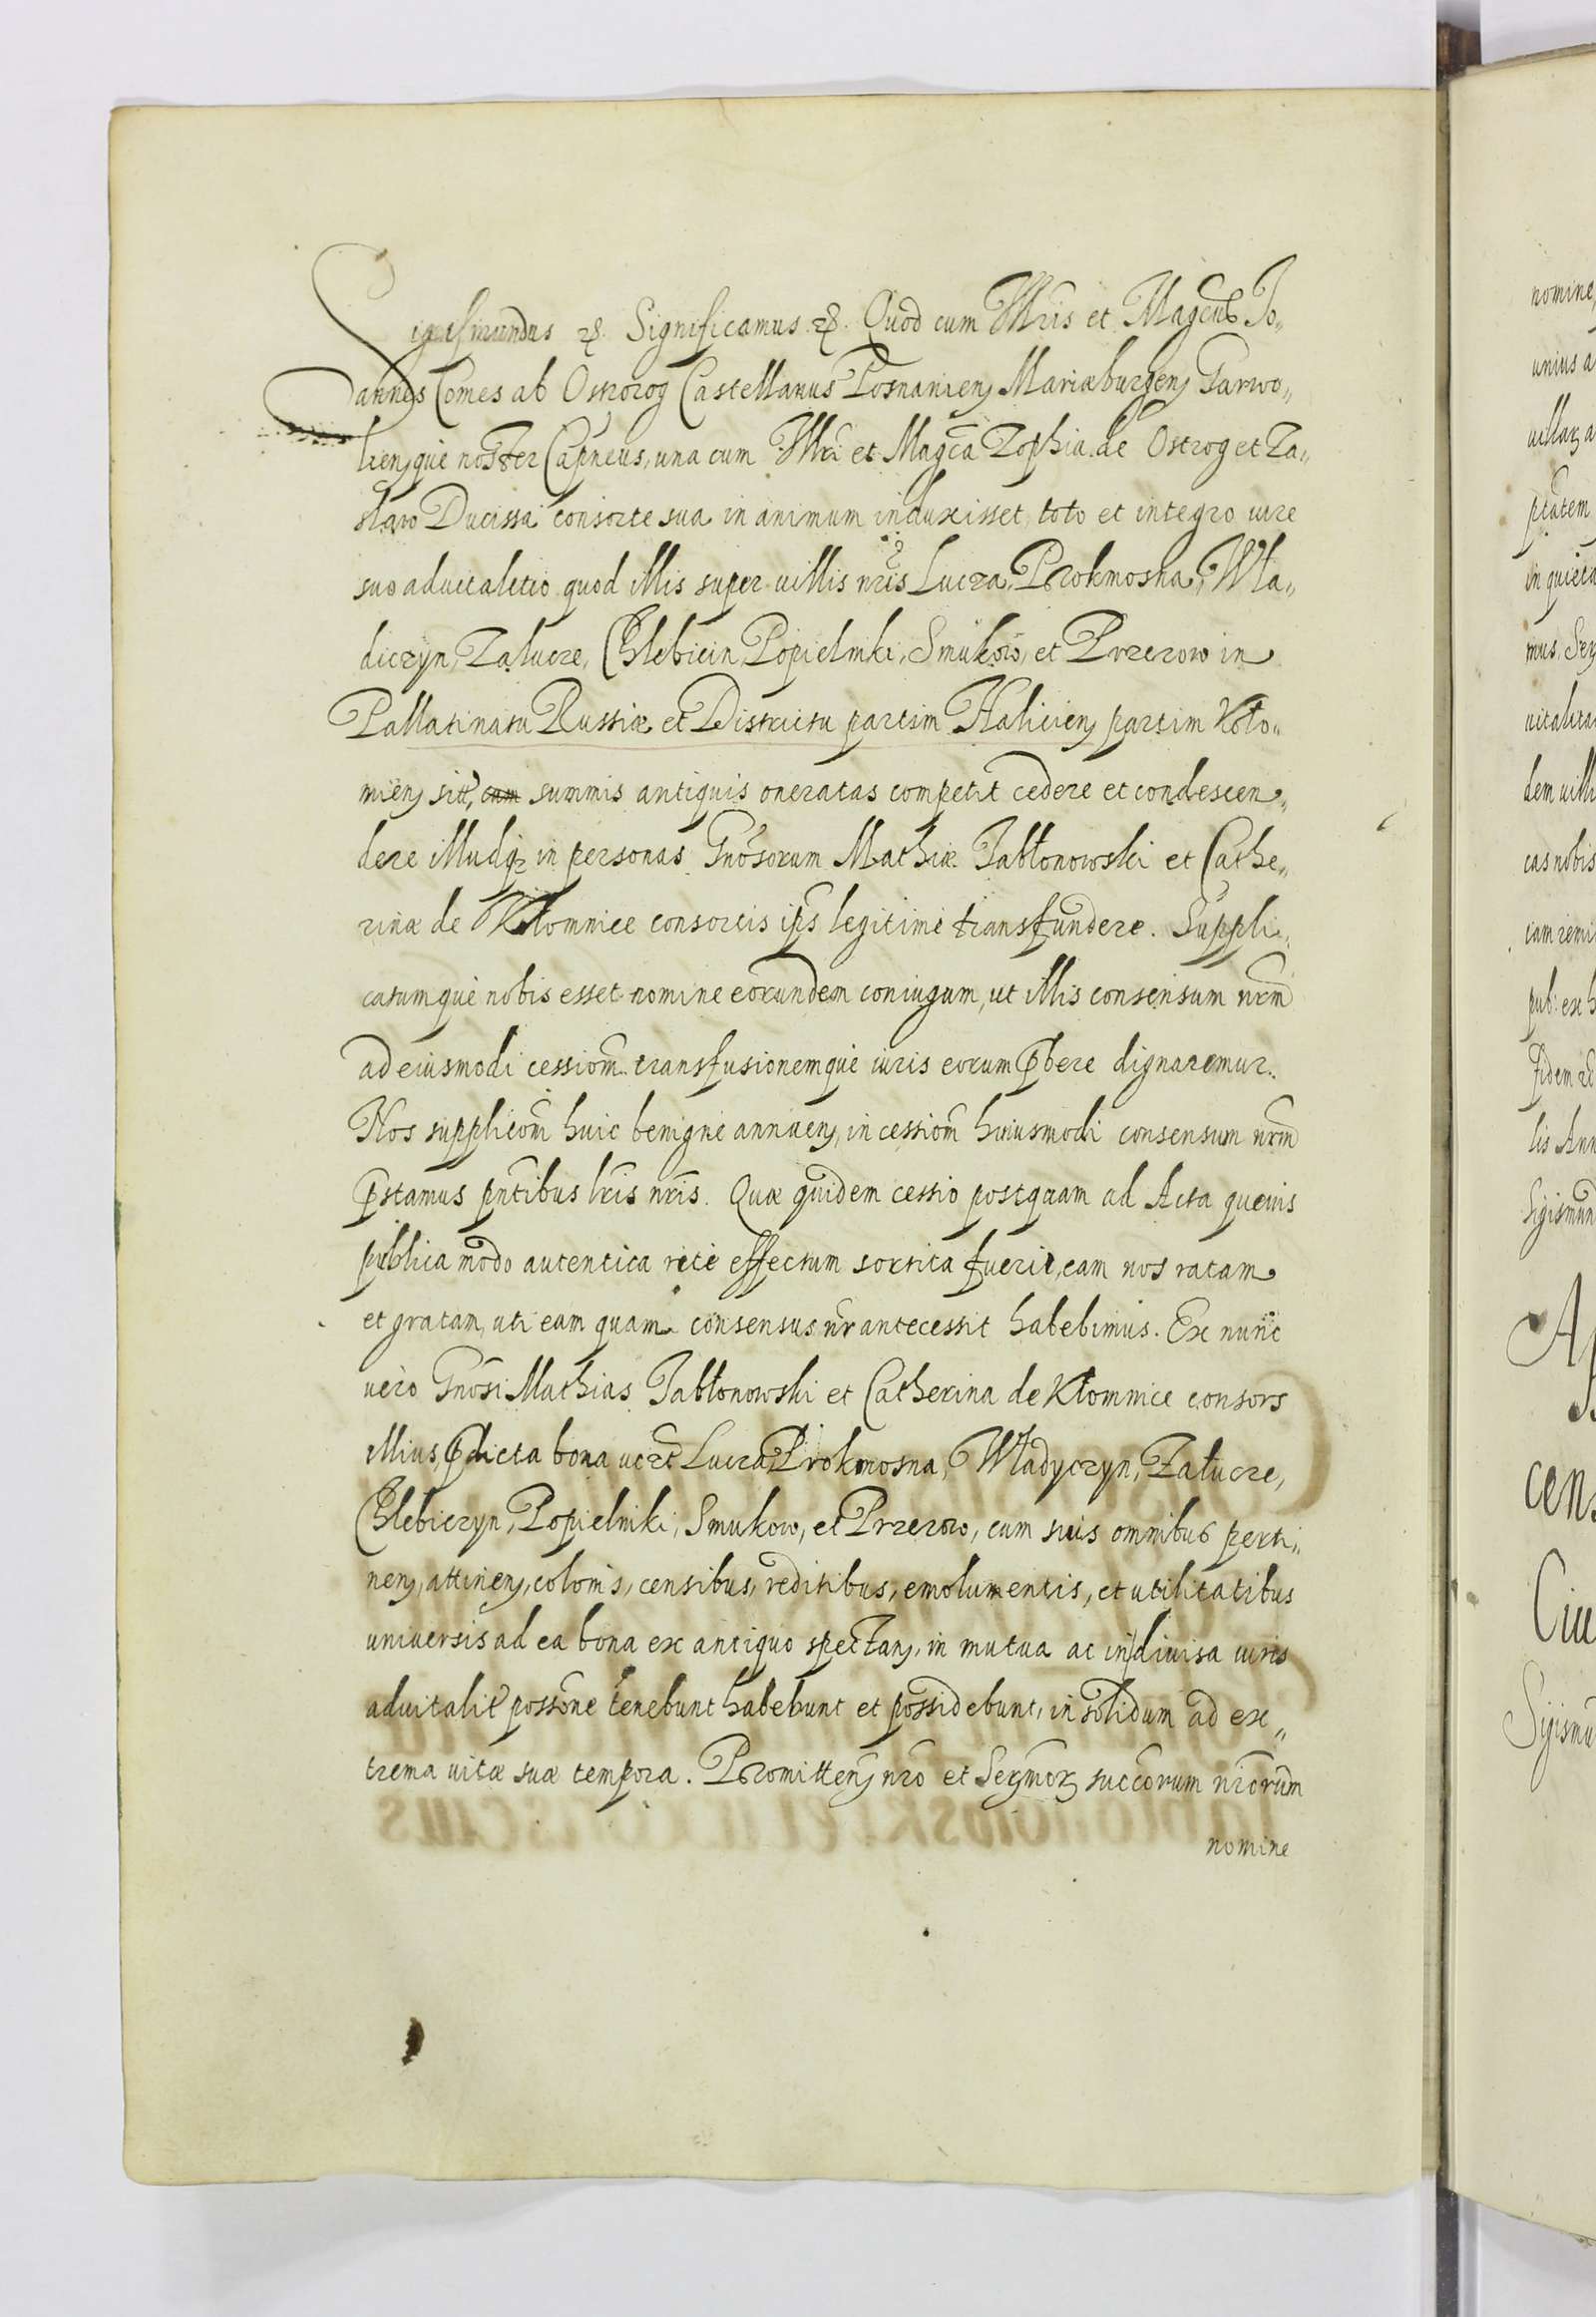 Sigismundus &c. Significamus &c. Quod cum Illris et Magcus Jo„
annes Comes ab Ostrorog Castellanus Posnanien Mariæburgen Garwo„
lienque noster Capneus, una cum Illri et Magca Zophia de Ostrog et Za„
slaw Ducissa consorte sua in animum induxisset toto et integro iure
suo aduitalitio quod illis super uillis nris Lucza, Prokmosna, Wla„
diczyn, Zalucze, Chlebicin, Popielniki, Smukow, et Przerow in
Pallatinatu Russiæ et Districtu partim Halicien partim Koło„
mien sitt, cum summis antiquis oneratas competit cedere et condescen„
dere illudq in personas Gnosorum Mathiæ Jabłonowski et Cathe„
rinæ de Kłomnice consortis ips legitimè transfundere. Suppli„
catumque nobis esset nomine eorundem coniugum, ut illis consensum nrm
ad eiusmodi cessiom transfusionemque iuris eorum pbere dignaremur.
Nos supplicom huic benignè annuen, in cessiom huiusmodi consensum nrm
pstamus pntibus lris nris. Quæ quidem cessio postquam ad Acta quæuis
publica modo autentica ritè effectum sortita fuerit, eam nos ratam
et gratam, uti eam quam consensus nr antecessit habebimus. Ex nunc
uero Gnosi Mathias Jabłonowski et Catherina de Kłomnice consors
illius, pdicta bona uczt Lucza, Prokmosna, Władyczyn, Załucze,
Chlebiczyn, Popielniki, Smukow, et Przerow, cum suis omnibus perti„
nen, attinen, colonis, censibus, reditibus, emolumentis, et utilitatibus
uniuersis ad ea bona ex antiquo spectan, in mutua ac indiuisa iuris
aduitalit possone tenebunt habebunt et possidebunt, in solidum ad ex„
trema uitæ suæ tempora. Promitten nro et Sermor succorum nrorum
nomine